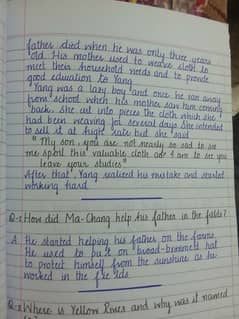 father died when he was only three years
old. His mother used to weave cloth to
meet their household needs and to provide
good education to Yang.
Yang was a lazy boy and once he ran away
from school when his mother saw him coming
back, she cut into pieces the cloth which she
had been weaving for several days. She intended
to sell it at high rate but she said
"My son, you are not nearly so sad to see
me spoil this valuable cloth as I am to see you
leave your studies"
After that, Yang realized his mistake and started
working hard.
Q-2 How did Ma-Chang help his father in the fields?
A. He started helping his father on the farms.
He used to put on broad-brimmed hat
to protect himself from the sunshine as he
worked in the fields.
Q-3 Where is Yellow River and why was it named